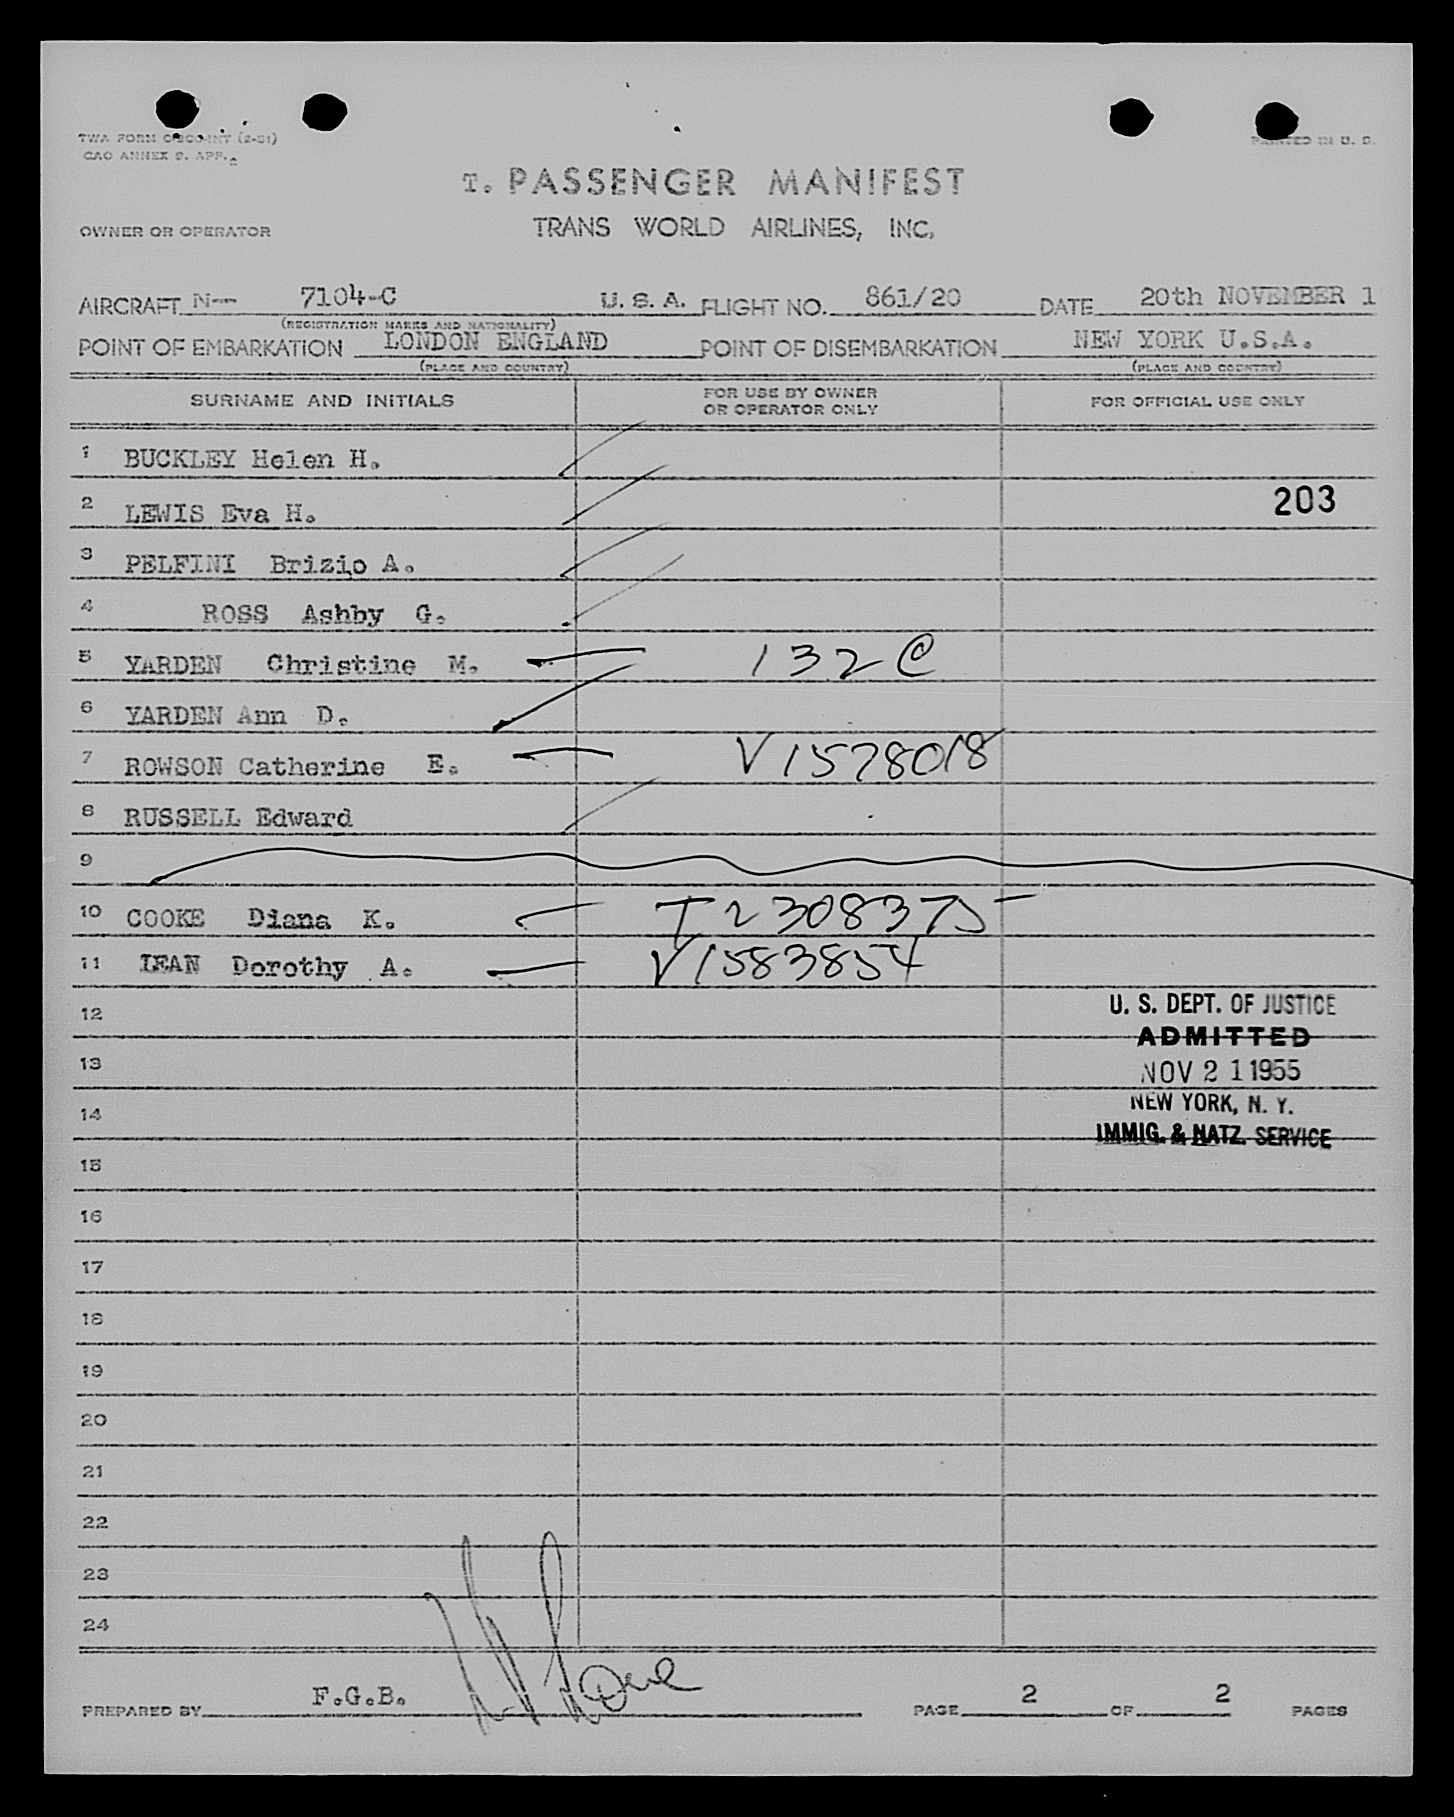 PRINTED IN U. S.
CAO ANNEX 9. APP.
T. PASSENGER MANIFEST
OWNER OR OPERATOR TRANS WORLD AIRLINES, INC.
AIRCRAFT N-- 7104-C U. S. A. FLIGHT NO. 861/20 DATE 20th NOVEMBER 1
(REGISTRATION MARKS AND NATIONALITY)
POINT OF EMBARKATION LONDON ENGLAND POINT OF DISEMBARKATION NEW YORK U.S.A.
(PLACE AND COUNTRY) (PLACE AND COUNTRY)
SURNAME AND INITIALS FOR USE BY OWNER OR OPERATOR ONLY FOR OFFICIAL USE ONLY
1 BUCKLEY Helen H.
2 LEWIS Eva H. 203
3 PELFINI Brizio A.
4 ROSS Ashby G.
5 YARDEN Christine M. 132 @
6 YARDEN Ann D.
7 ROWSON Catherine E. V1578018
8 RUSSELL Edward
9
10 COOKE Diana K. T2308375
11 LEAN Dorothy A. V1583854
12 U. S. DEPT. OF JUSTICE
ADMITTED
13 NOV 21 1955
14 NEW YORK, N. Y.
IMMIG. & NATZ. SERVICE
15
16
17
18
19
20
21
22
23
24
PREPARED BY F.G.B. PAGE 2 OF 2 PAGES